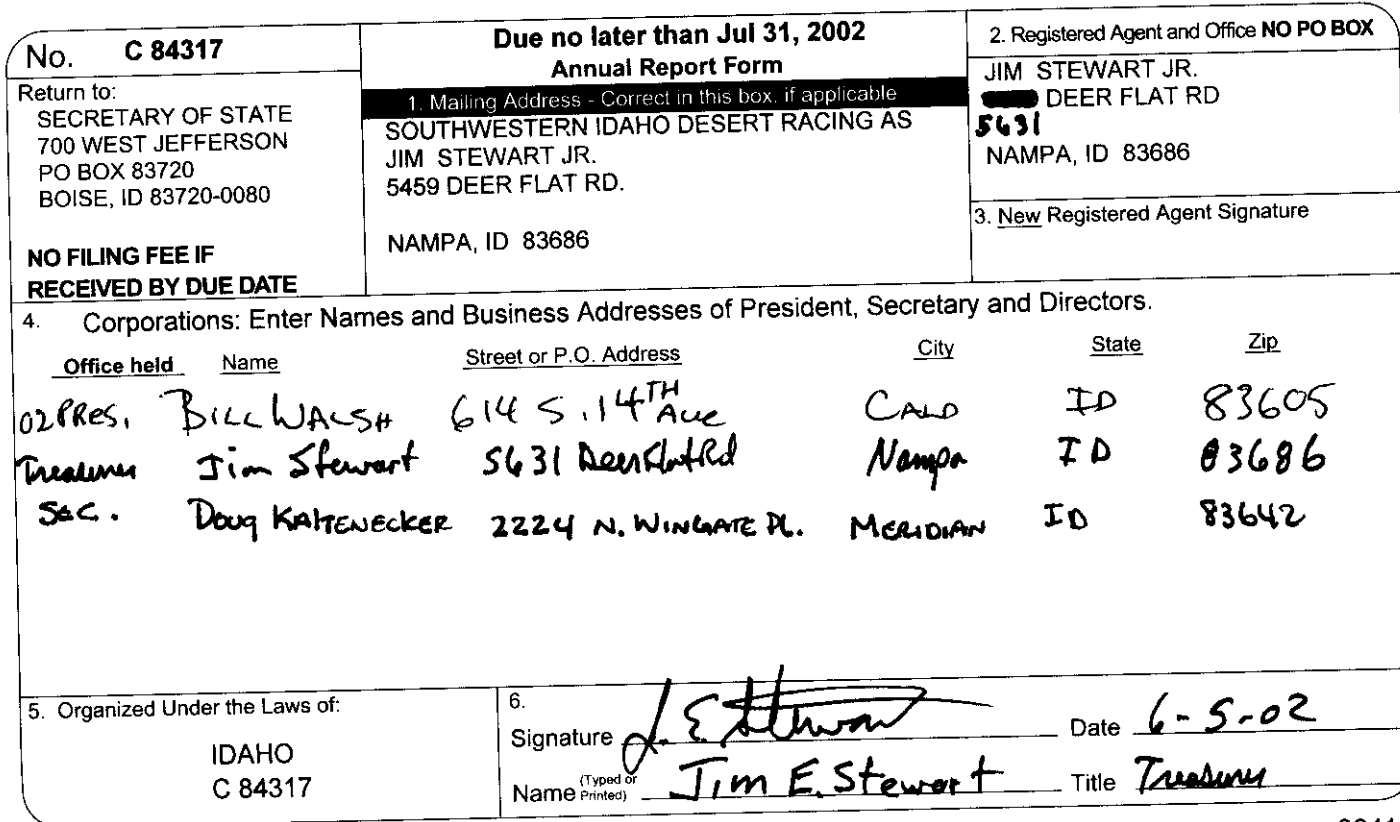 No. C 84317
Return to:
SECRETARY OF STATE
700 WEST JEFFERSON
PO BOX 83720
BOISE, ID 83720-0080
NO FILING FEE IF
RECEIVED BY DUE DATE
Due no later than Jul 31, 2002
Annual Report Form
1. Mailing Address - Correct in this box, if applicable
SOUTHWESTERN IDAHO DESERT RACING AS
JIM STEWART JR.
5459 DEER FLAT RD.
NAMPA, ID 83686
2. Registered Agent and Office NO PO BOX
JIM STEWART JR.
DEER FLAT RD
5631
NAMPA, ID 83686
3. New Registered Agent Signature
4. Corporations: Enter Names and Business Addresses of President, Secretary and Directors.
Office held Name Street or P.O. Address City State Zip
02 PRES. BILL WALSH 614 S. 14TH Ave CALD ID 83605
Treasurer Jim Stewart 5631 Deer Flat Rd Nampa ID 83686
SEC. Doug KALTENECKER 2224 N. WINGATE PL. MERIDIAN ID 83642
5. Organized Under the Laws of:
IDAHO
C 84317
6.
Signature J. E. Stewart Date 6-5-02
Name (Typed or Printed) Jim E. Stewart Title Treasurer